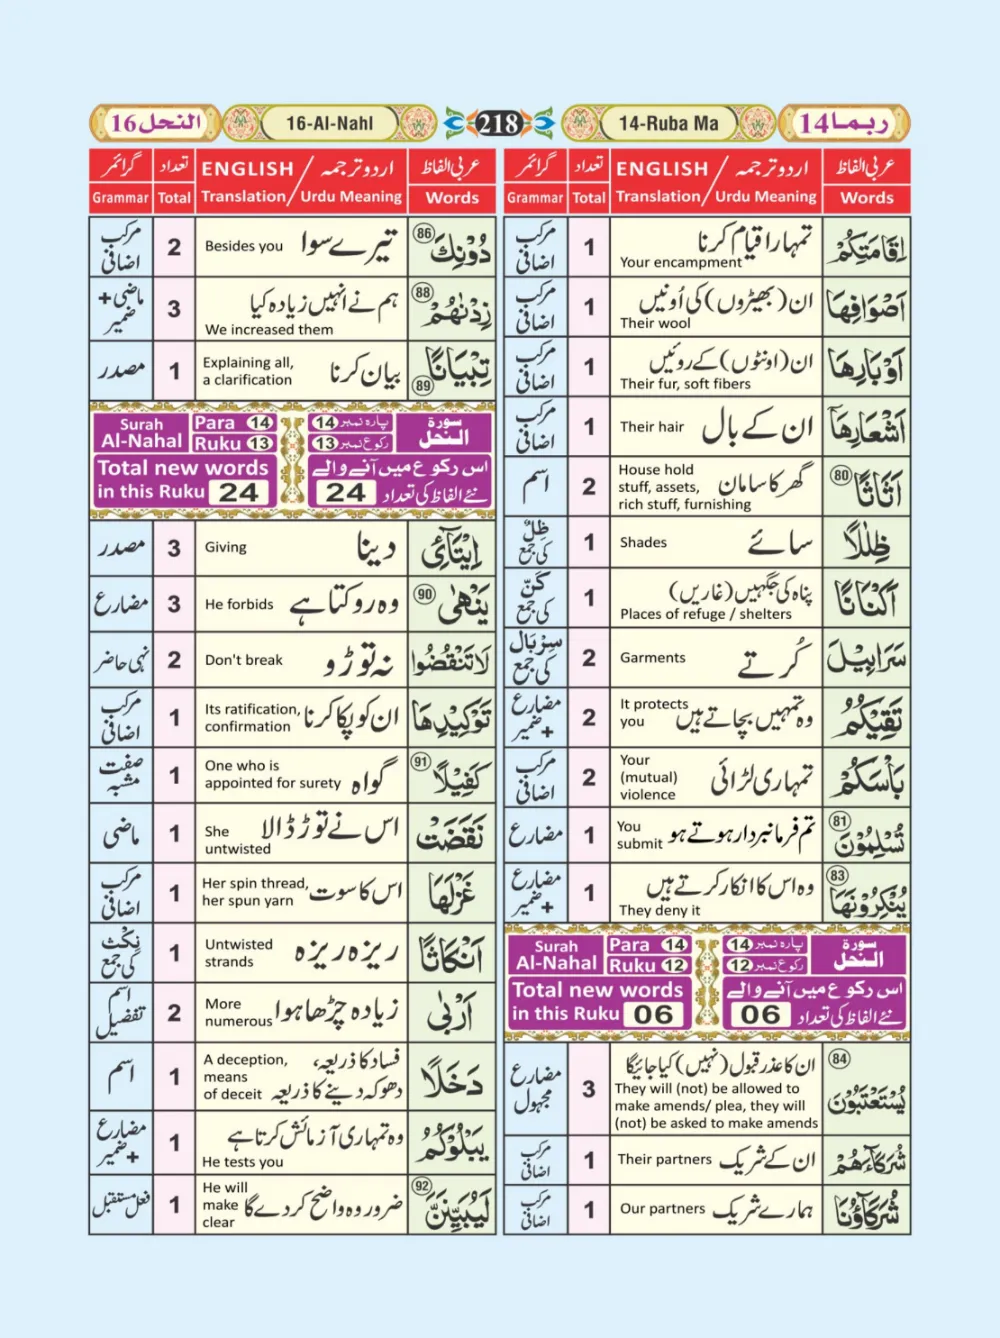 ربما 14
14-Ruba Ma
218
16-Al-Nahl
النحل 16
عربی الفاظ
اردو ترجمہ / ENGLISH
تعداد
گرائمر
Words
Translation / Urdu Meaning
Total
Grammar
اِقَامَتِكُمْ
تمہارا قیام کرنا
Your encampment
1
مرکب اضافی
اَصْوَافِهَا
ان (بھیڑوں) کی اُونیں
Their wool
1
مرکب اضافی
اَوْبَارِهَا
ان (اونٹوں) کے روئیں
Their fur, soft fibers
1
مرکب اضافی
اَشْعَارِهَآ
ان کے بال
Their hair
1
مرکب اضافی
اَثَاثًا 80
گھر کا سامان
House hold
stuff, assets,
rich stuff, furnishing
2
اسم
ظِلٰلًا
سائے
Shades
1
ظِلٌّ کی جمع
اَكْنَانًا
پناہ کی جگہیں (غاریں)
Places of refuge / shelters
1
كَنّ کی جمع
سَرَابِيْلَ
کُرتے
Garments
2
سِرْبَال کی جمع
تَقِيْكُمْ
وہ تمہیں بچاتے ہیں
It protects
you
2
مضارع + ضمیر
بَاْسَكُمْ
تمہاری لڑائی
Your
(mutual)
violence
2
مرکب اضافی
تُسْلِمُوْنَ 81
تم فرمانبردار ہوتے ہو
You
submit
1
مضارع
يُنْكِرُوْنَهَا 83
وہ اس کا انکار کرتے ہیں
They deny it
1
مضارع + ضمیر
سورة النحل
پارہ نمبر 14
رکوع نمبر 12
Para 14
Ruku 12
Surah
Al-Nahal
اس رکوع میں آنے والے
نئے الفاظ کی تعداد 06
Total new words
in this Ruku 06
يُسْتَعْتَبُوْنَ 84
ان کا عذر قبول (نہیں) کیا جائیگا
They will (not) be allowed to
make amends/ plea, they will
(not) be asked to make amends
3
مضارع مجہول
شُرَكَآءَهُمْ
ان کے شریک
Their partners
1
مرکب اضافی
شُرَكَآؤُنَا
ہمارے شریک
Our partners
1
مرکب اضافی
عربی الفاظ
اردو ترجمہ / ENGLISH
تعداد
گرائمر
Words
Translation / Urdu Meaning
Total
Grammar
دُوْنِكَ 86
تیرے سوا
Besides you
2
مرکب اضافی
زِدْنٰهُمْ 88
ہم نے انہیں زیادہ کیا
We increased them
3
ماضی + ضمیر
تِبْيَانًا 89
بیان کرنا
Explaining all,
a clarification
1
مصدر
سورة النحل
پارہ نمبر 14
رکوع نمبر 13
Para 14
Ruku 13
Surah
Al-Nahal
اس رکوع میں آنے والے
نئے الفاظ کی تعداد 24
Total new words
in this Ruku 24
اِيْتَآئِ
دینا
Giving
3
مصدر
يَنْهٰى 90
وہ روکتا ہے
He forbids
3
مضارع
لَا تَنْقُضُوا
نہ توڑو
Don't break
2
نہی حاضر
تَوْكِيْدِهَا
ان کو پکا کرنا
Its ratification,
confirmation
1
مرکب اضافی
كَفِيْلًا 91
گواہ
One who is
appointed for surety
1
صفت مشبہ
نَقَضَتْ
اس نے توڑ ڈالا
She
untwisted
1
ماضی
غَزْلَهَا
اس کا سوت
Her spin thread,
her spun yarn
1
مرکب اضافی
اَنْكَاثًا
ریزہ ریزہ
Untwisted
strands
1
نِكْثٌ کی جمع
اَرْبٰى
زیادہ چڑھا ہوا
More
numerous
2
اسم تفضیل
دَخَلًا
فساد کا ذریعہ،
دھوکہ دینے کا ذریعہ
A deception,
means
of deceit
1
اسم
يَبْلُوْكُمْ
وہ تمہاری آزمائش کرتا ہے
He tests you
1
مضارع + ضمیر
لَيُبَيِّنَنَّ 92
ضرور وہ واضح کر دے گا
He will
make
clear
1
فعل مستقبل